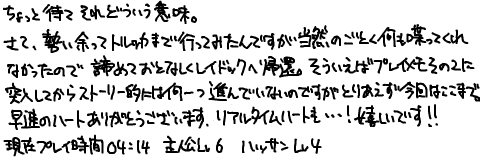 ちょっと待て それどういう意味。
さて、勢い余ってトルッカまで行ってみたんですが当然のごとく何も喋ってくれ
なかったので 諦めておとなしくレイドックへ帰還。そういえばプレイメモその2に
突入してからストーリー的には何一つ進んでいないのですがとりあえず今回はここまで。
早速のハートありがとうございます、リアルタイムハートも…!嬉しいです!!
現在プレイ時間 04:14 主人公Lv 6 ハッサン Lv 4